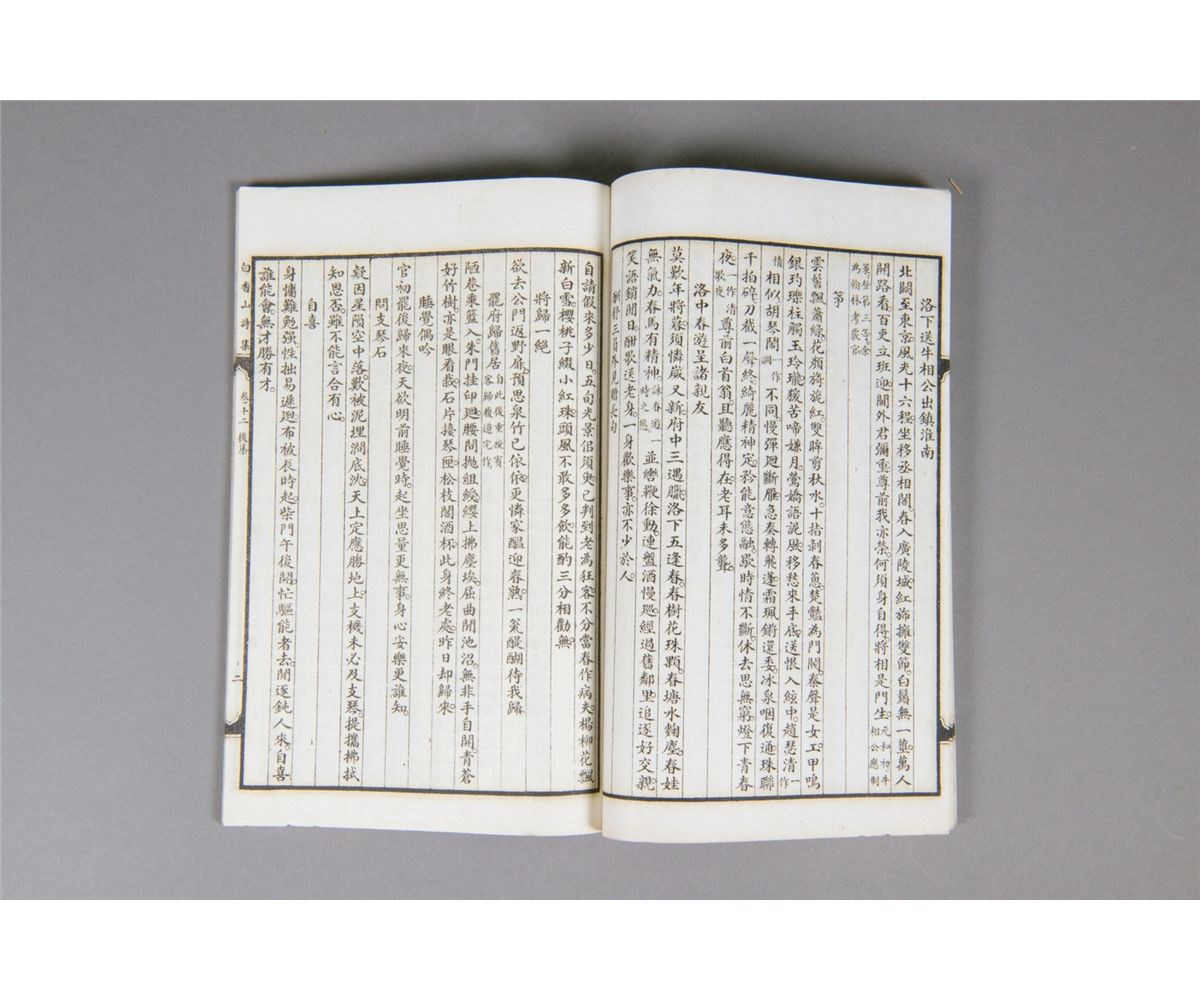 洛下送牛相公出鎮淮南
北闕至東京風光十六程坐移丞相閤春入廣陵城紅旆擁雙節白鬚無一莖萬人
開路看百吏立班迎閫外君彌重尊前我亦榮何須身自得將相是門生元和初牛相公應制策登第三等余為翰林考覈官
箏
雲髻飄蕭綠花顏旖旎紅雙眸剪秋水十指剝春蔥楚豔為門閥秦聲是女工甲鳴
銀玓瓅柱觸玉玲瓏猨苦啼嫌月鶯嬌語詑風移愁來手底送恨入絃中趙瑟清一作
情相似胡琴鬧一作調不同慢彈迴斷雁急奏轉飛蓬霜珮鏘還委冰泉咽復通珠聯
千拍碎刀截一聲終綺麗精神定矜能意態融歇時情不斷休去思無窮燈下青春
夜一作清歌夜尊前白首翁且聽應得在老耳未多聾
洛中春遊呈諸親友
莫歎年將暮須憐歲又新府中三遇臘洛下五逢春春樹花珠顆春塘水麴塵春娃
無氣力春馬有精神詠春遊時之態並轡鞭徐動連盤酒慢巡經過舊鄰里追逐好交親
笑語銷閒日酣歌送老身一身歡樂事亦不少於人
酬舒三員外見贈長句
自請假來多少日五旬光景似須臾已判到老為狂客不分當春作病夫楊柳花飄
新白雪櫻桃子綴小紅珠頭風不敢多多飲能酌三分相勸無
將歸一絕
欲去公門返野扉預思泉竹已依依更憐家醞迎春熟一甕醍醐待我歸
罷府歸舊居自此後重授賓客歸履道宅作
陋巷乘籃入朱門挂印迴腰間拋組綬纓上拂塵埃屈曲閒池沼無非手自開青蒼
好竹樹亦是眼看栽石片擡琴匣松枝閣酒杯此身終老處昨日却歸來
睡覺偶吟
官初罷後歸來夜天欲明前睡覺時起坐思量更無事身心安樂更誰知
問支琴石
疑因星隕空中落歎被泥埋澗底沈天上定應勝地上支機未必及支琴提攜拂拭
知恩否雖不能言合有心
自喜
身慵難勉强性拙易遲迴布被辰時起柴門午後開忙驅能者去閒逐鈍人來自喜
誰能會無才勝有才
白香山詩集 卷十二後集 二